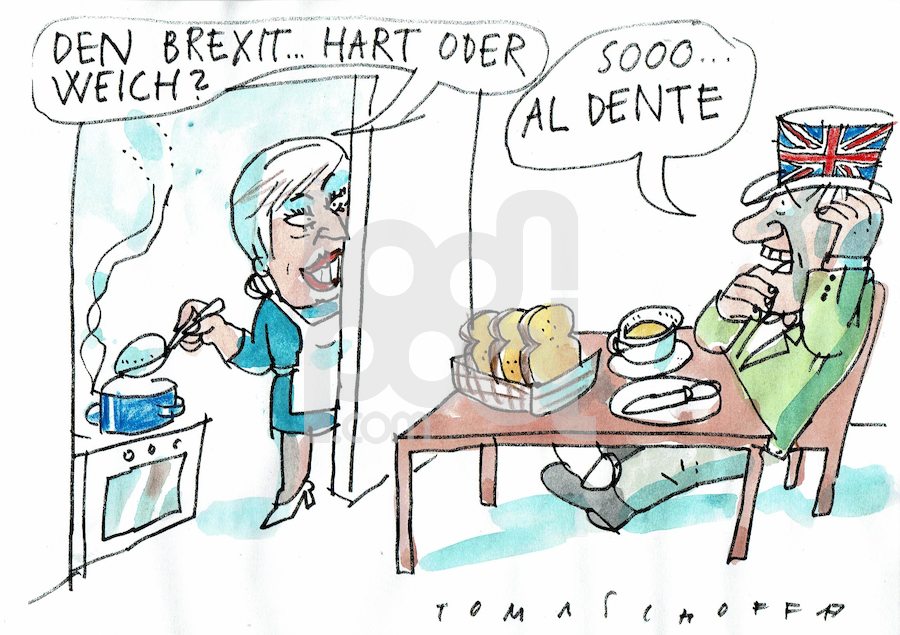 DEN BREXIT... HART ODER
WEICH?
SOOO...
AL DENTE
toonpool
.com
TOMASCHOFF